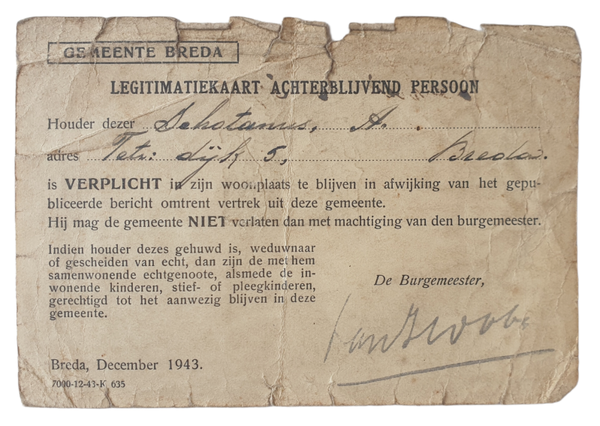 GEMEENTE BREDA
LEGITIMATIEKAART ACHTERBLIJVEND PERSOON
Houder dezer Schotanus, A.
adres Tetr: dijk 5, Breda.
is VERPLICHT in zijn woonplaats te blijven in afwijking van het gepu-
bliceerde bericht omtrent vertrek uit deze gemeente.
Hij mag de gemeente NIET verlaten dan met machtiging van den burgemeester.
Indien houder dezes gehuwd is, weduwnaar
of gescheiden van echt, dan zijn de met hem
samenwonende echtgenoote, alsmede de in-
wonende kinderen, stief- of pleegkinderen,
gerechtigd tot het aanwezig blijven in deze
gemeente.
De Burgemeester,
Breda, December 1943.
7000-12-43-K 635